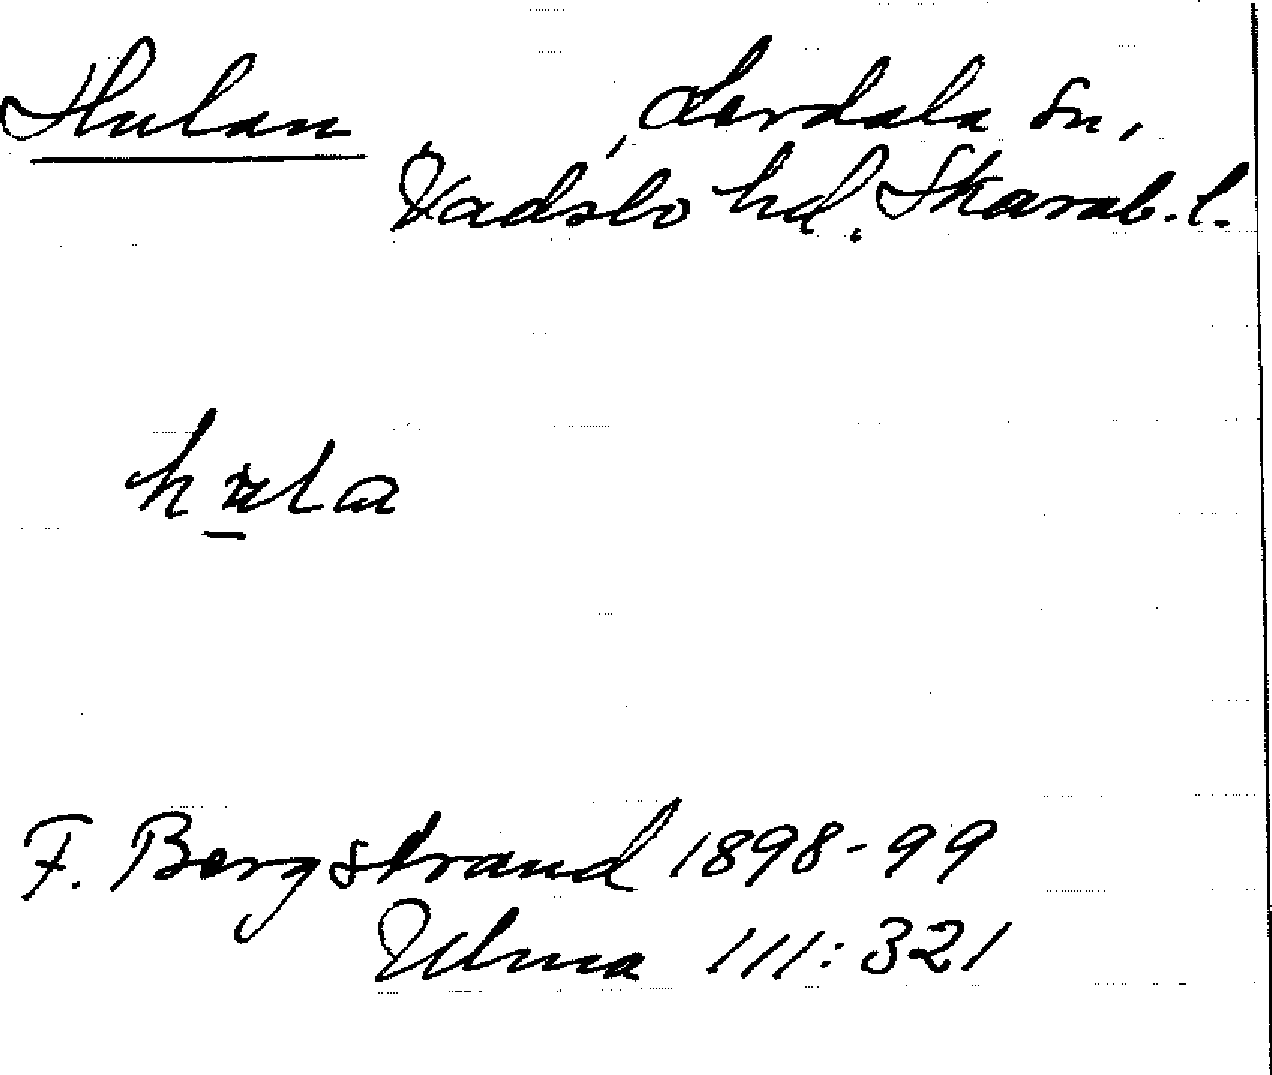 Hulan , Lerdala sn,
Vadsbo hd. Skarab. l.
hula
F. Bergstrand 1898-99
Ulma 111:321